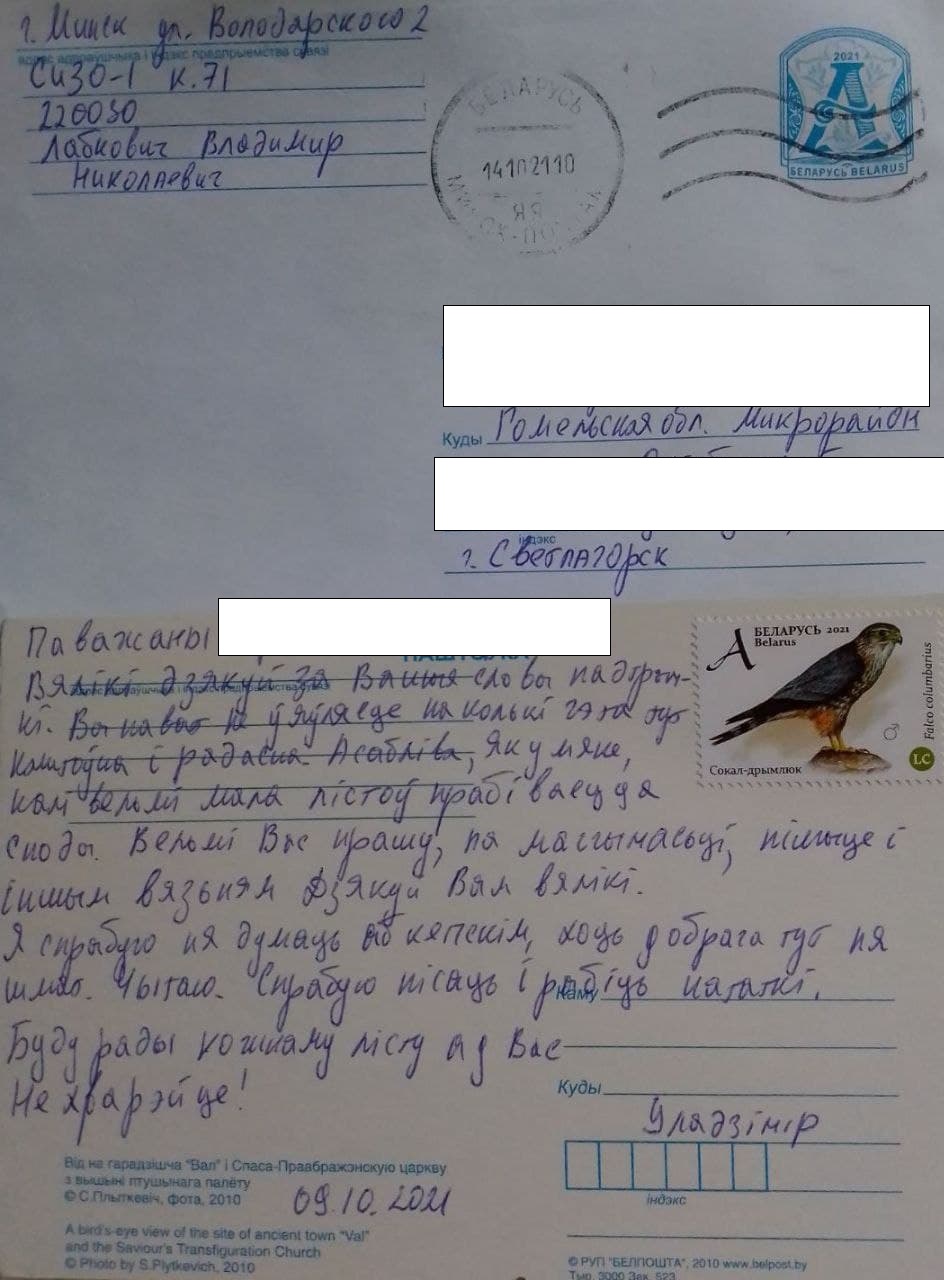 г. Минск ул. Володарского 2
адрас адпраўшчыка і індэкс прадпрыемства сувязі
СИЗО-1 к.71
220030
Лабкович Владимир
Николаевич
БЕЛАРУСЬ
14102110
ЯЯ
2021
А
БЕЛАРУСЬ BELARUS
Куды Гомельская обл. Микрорайон
індэкс
г. Светлагорск
Паважаны
ПАШТОЎКА
Вялікі дзякуй за Вашыя словы падтрым-
кі. Вы нават не ўяўляеце наколькі гэта тут
каштоўна і радасна. Асабліва, як у мяне,
калі вельмі мала лістоў прабіваецца
сюды. Вельмі Вас прашу, па магчымасьці, пішыце і
іншым вязьням Дзякуй Вам вялікі.
Я спрабую ня думаць аб кепскім, хоць добрага тут ня
шмат. Чытаю. Спрабую пісаць і рабіць нататкі.
Каму
Буду рады кожнаму лісту ад Вас
Не хварэйце!
Куды
Уладзімір
індэкс
А БЕЛАРУСЬ 2021
Belarus
Falco columbarius
LC
Сокал-дрымлюк
Від на гарадзішча "Вал" і Спаса-Праабражэнскую царкву
з вышыні птушынага палёту
© С.Плыткевіч, фота, 2010
09.10.2021
A bird's-eye view of the site of ancient town "Val"
and the Saviour's Transfiguration Church
© Photo by S.Plytkevich, 2010
© РУП "БЕЛПОШТА", 2010 www.belpost.by
Тыр. 3000 Зак. 523